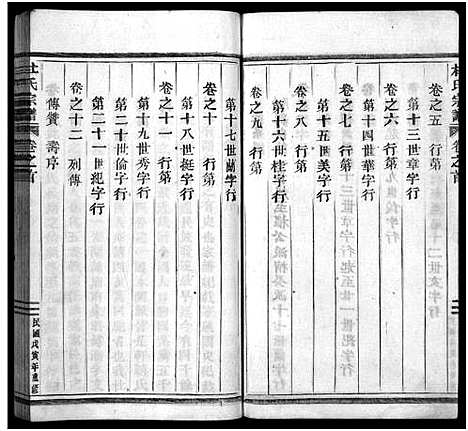 杜氏宗譜
卷之首
卷之五　行第
第十三世章字行
卷之六　行第
第十四世華字行
卷之七　行第
第十五世美字行
卷之八　行第
第十六世桂字行
卷之九　行第
第十七世蘭字行
卷之十　行第
第十八世挺字行
卷之十一　行第
第十九世秀字行
第二十世倫字行
第二十一世紀字行
卷之十二　列傳
傳贊　壽序
杜氏宗譜
卷之首
民國戊寅年重修